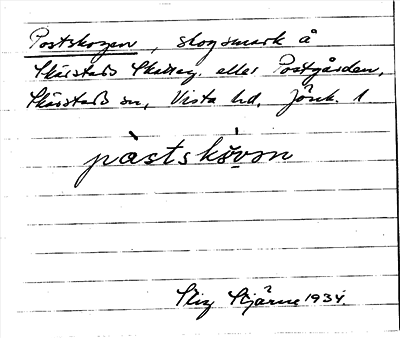 Postskogen, skogsmark å
Skärstads Skatteg. eller Postgården,
Skärstads sn, Vista hd, Jönk. l.
pàstskóvm
Stig Stjärne 1934.